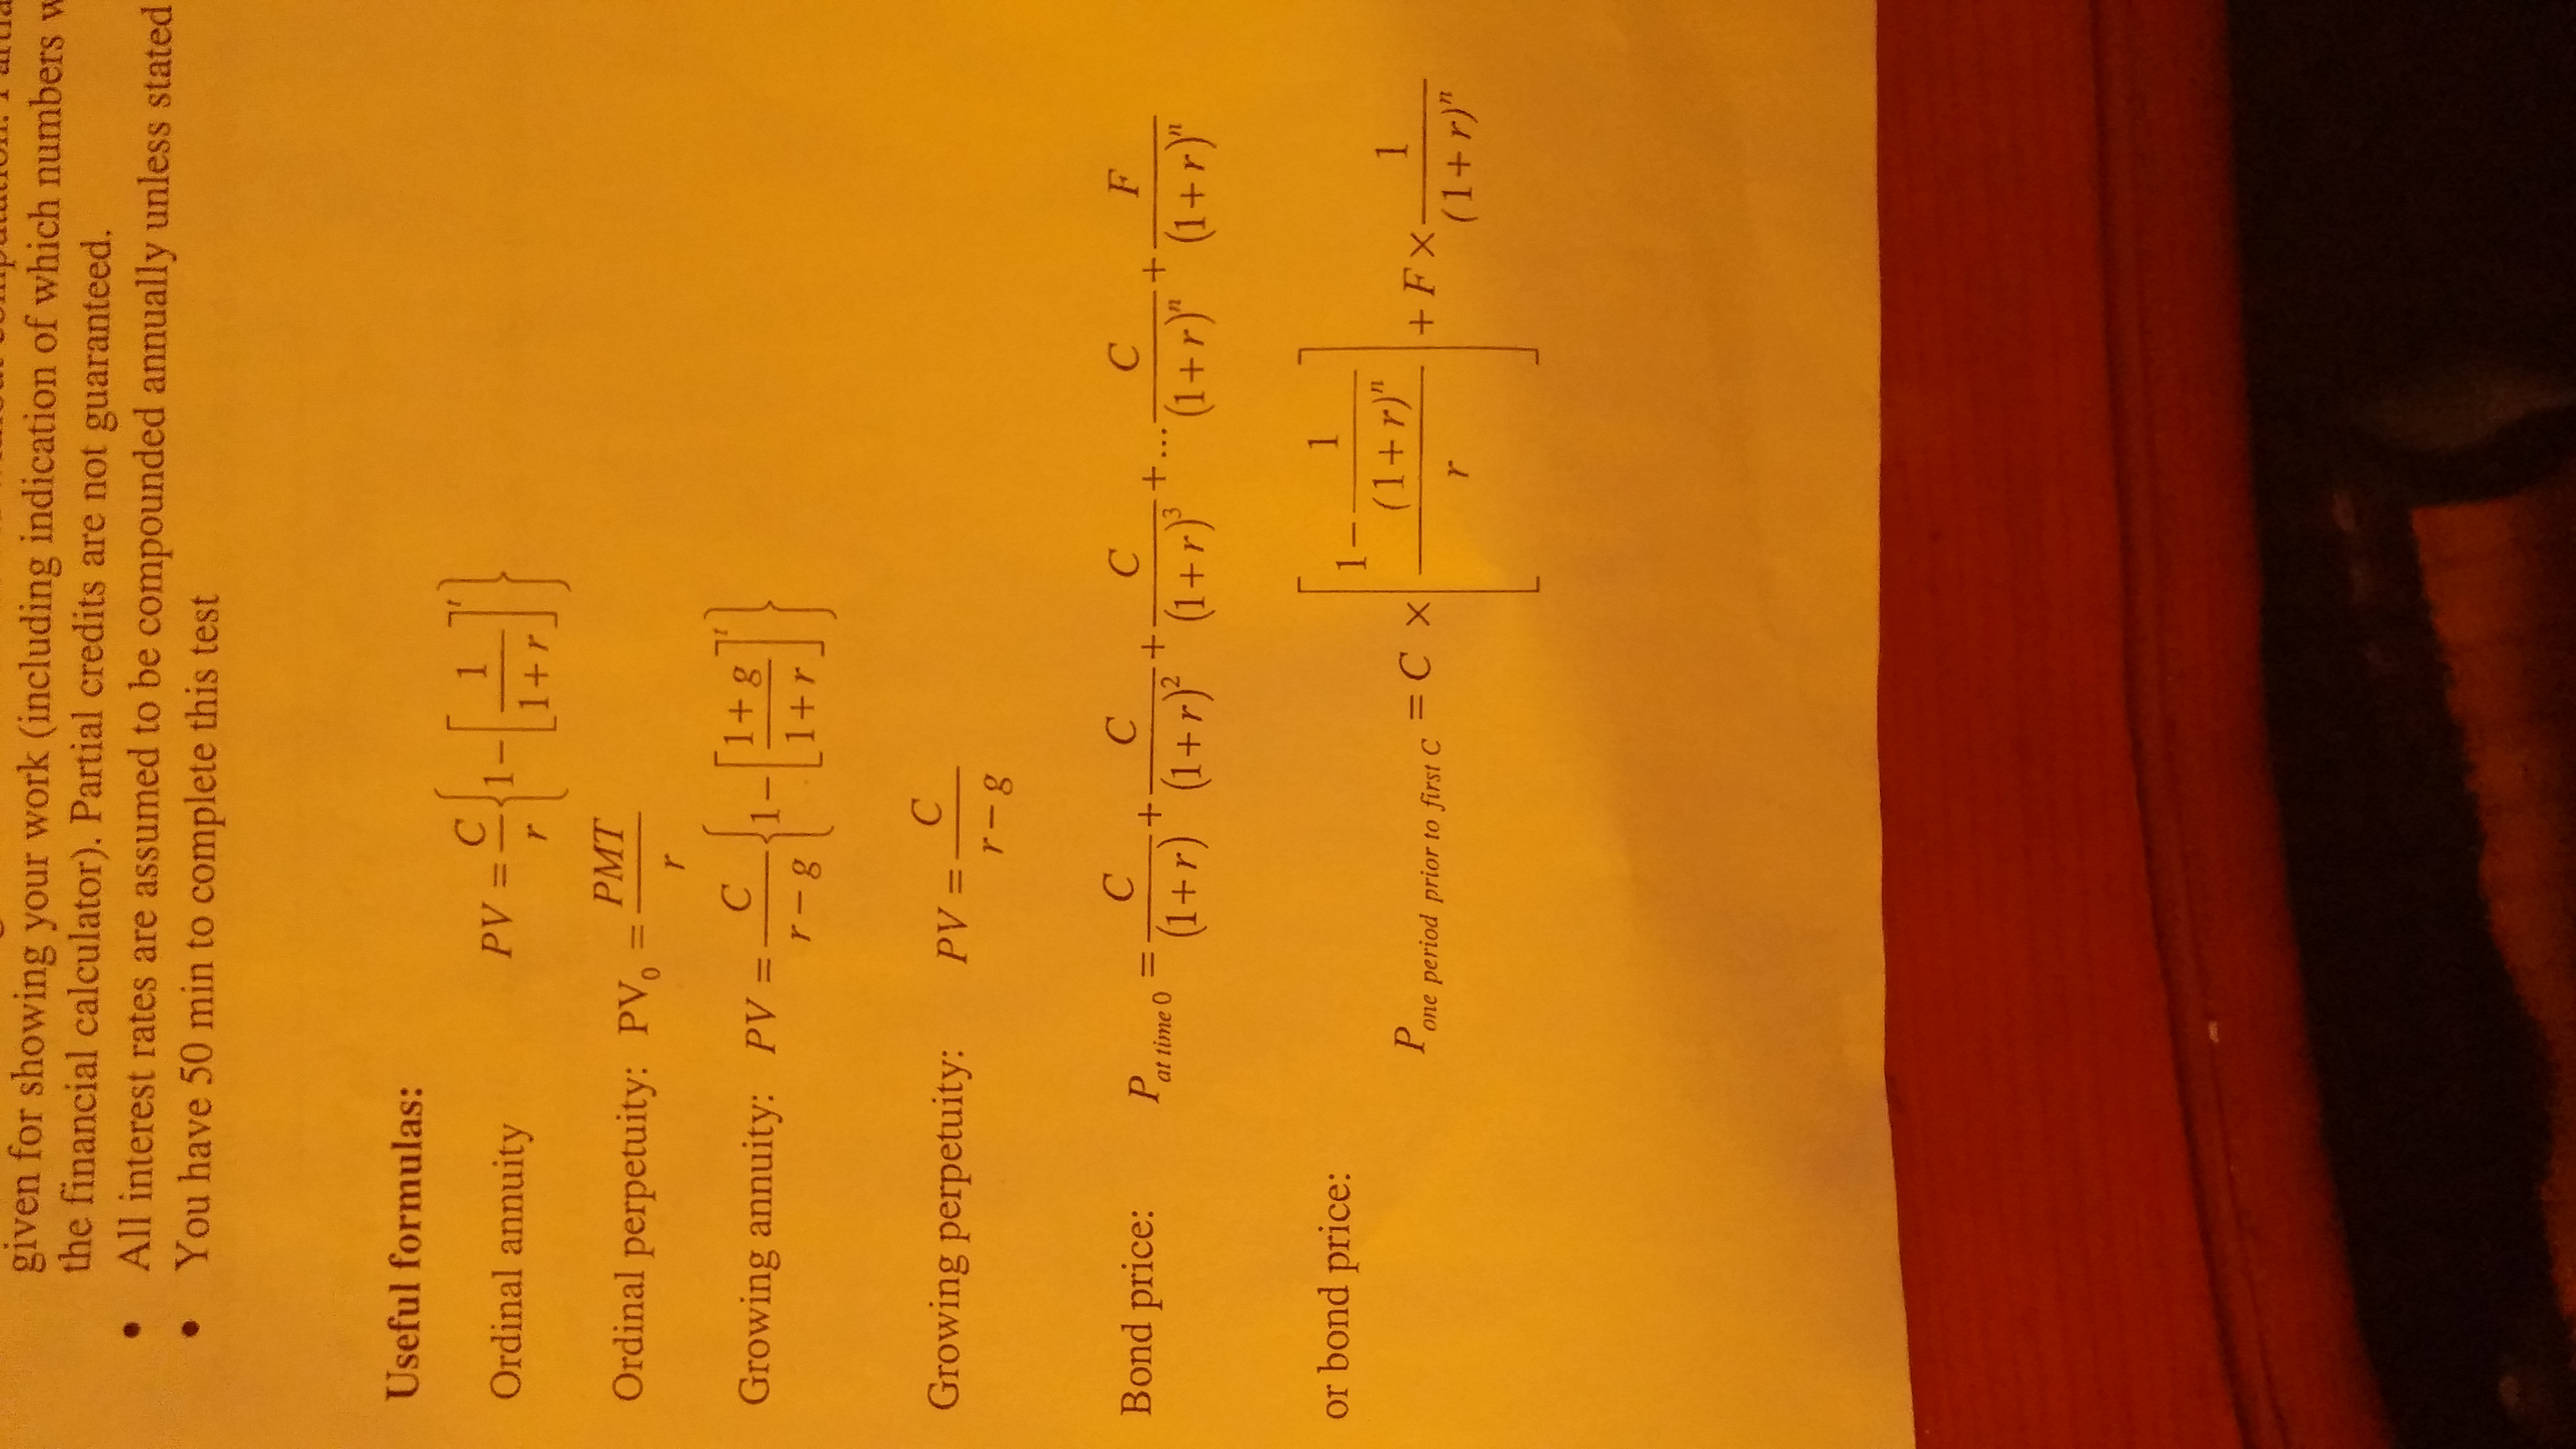 given for showing your work (including indication of which numbers
the financial calculator). Partial credits are not guaranteed.
• All interest rates are assumed to be compounded annually unless stated
• You have 50 min to complete this test
Useful formulas:
Ordinal annuity PV = C/r {1 − [1/(1+r)]^t}
Ordinal perpetuity: PV₀ = PMT/r
Growing annuity: PV = C/(r−g) {1 − [(1+g)/(1+r)]^t}
Growing perpetuity: PV = C/(r−g)
Bond price: P at time 0 = C/(1+r) + C/(1+r)² + C/(1+r)³ + ... C/(1+r)ⁿ + F/(1+r)ⁿ
or bond price: P one period prior to first C = C × [(1 − 1/(1+r)ⁿ)/r] + F × 1/(1+r)ⁿ